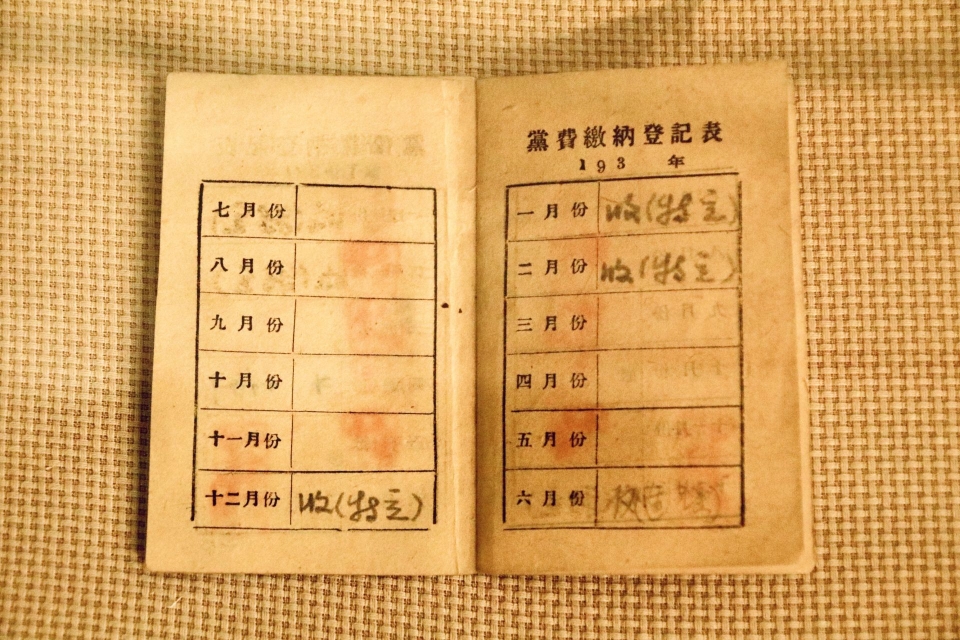 七月份
八月份
九月份
十月份
十一月份
十二月份 收(
黨費繳納登記表
193 年
一月份 收(
二月份 收(
三月份
四月份
五月份
六月份